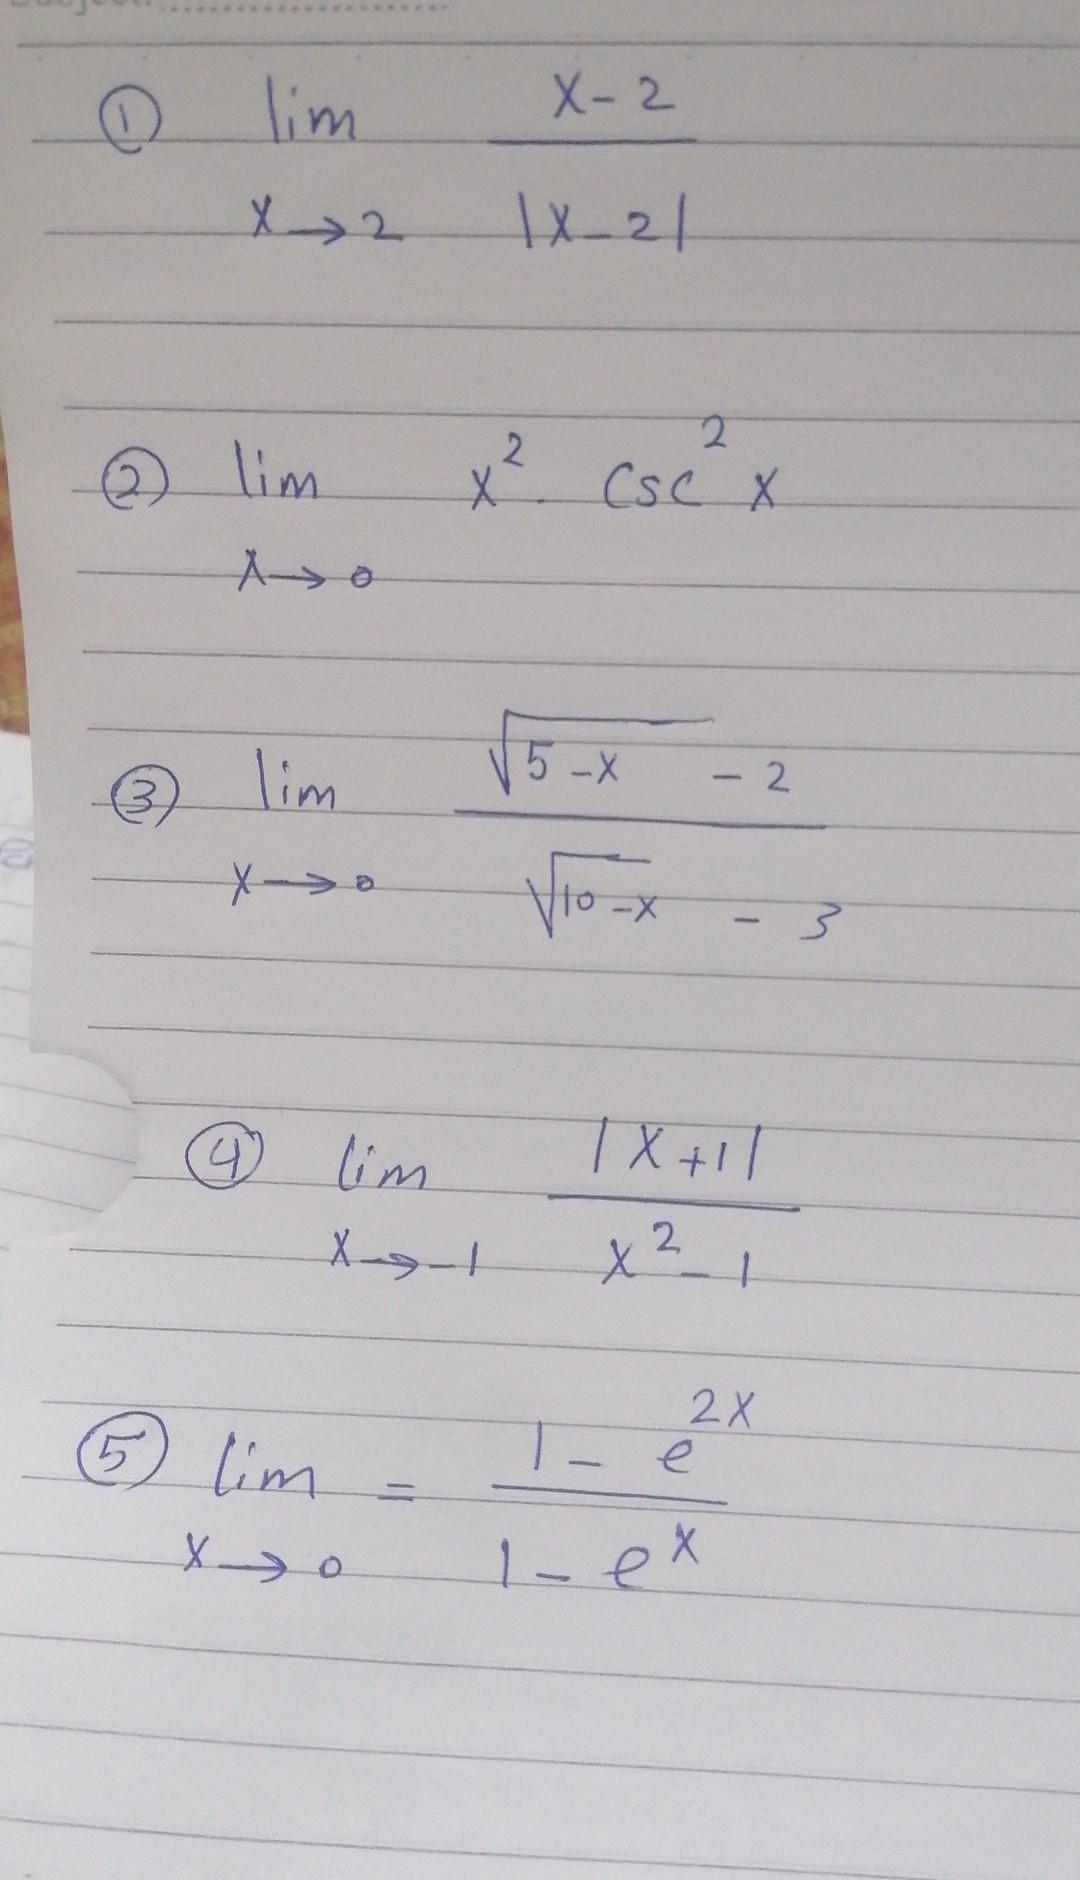 ① lim x-2
x→2 |x-2|
② lim x². csc² x
x→0
③ lim √5-x - 2
x→0 √10-x - 3
④ lim |x+1|
x→-1 x²-1
⑤ lim = 1-e^2x
x→0 1-e^x